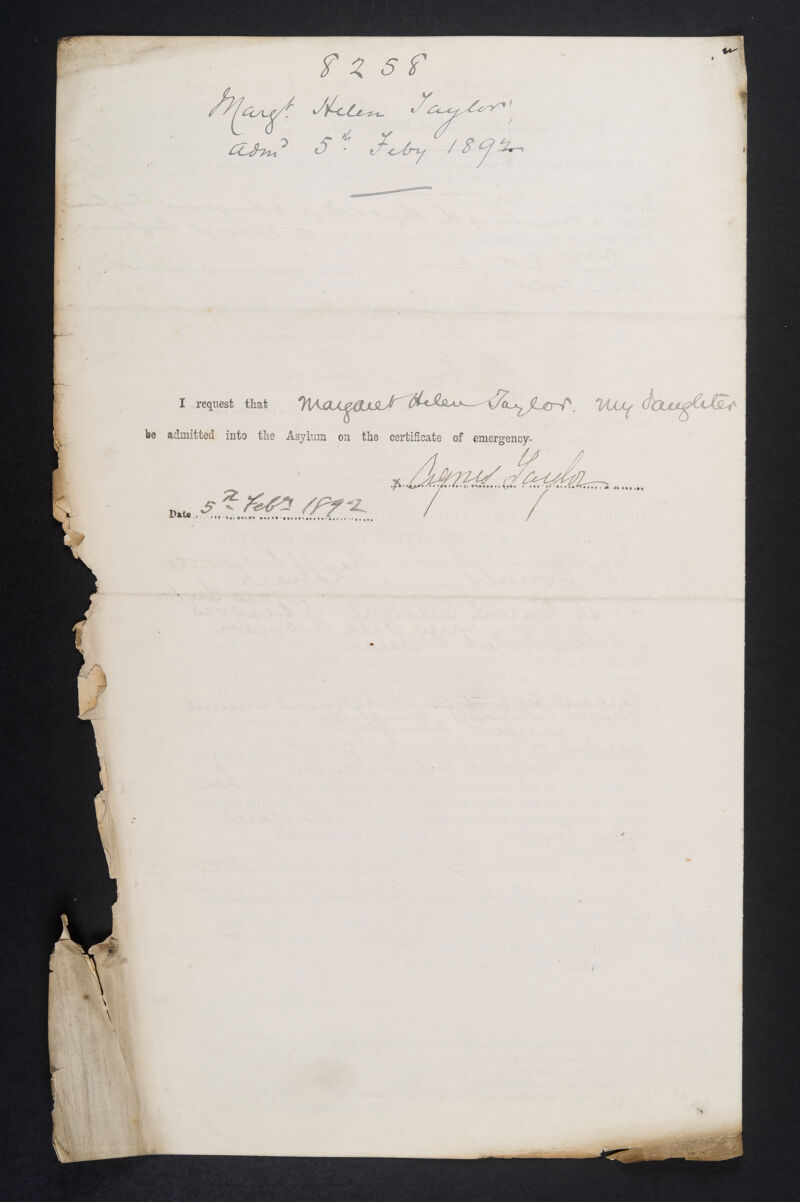 8258
Margt. Helen Taylor.
admd 5th. Feby 1892
I request that Margaret Helen Taylor. my daughter
be admitted into the Asylum on the certificate of emergency.
x Agnes Taylor
Date 5th Feby 1892